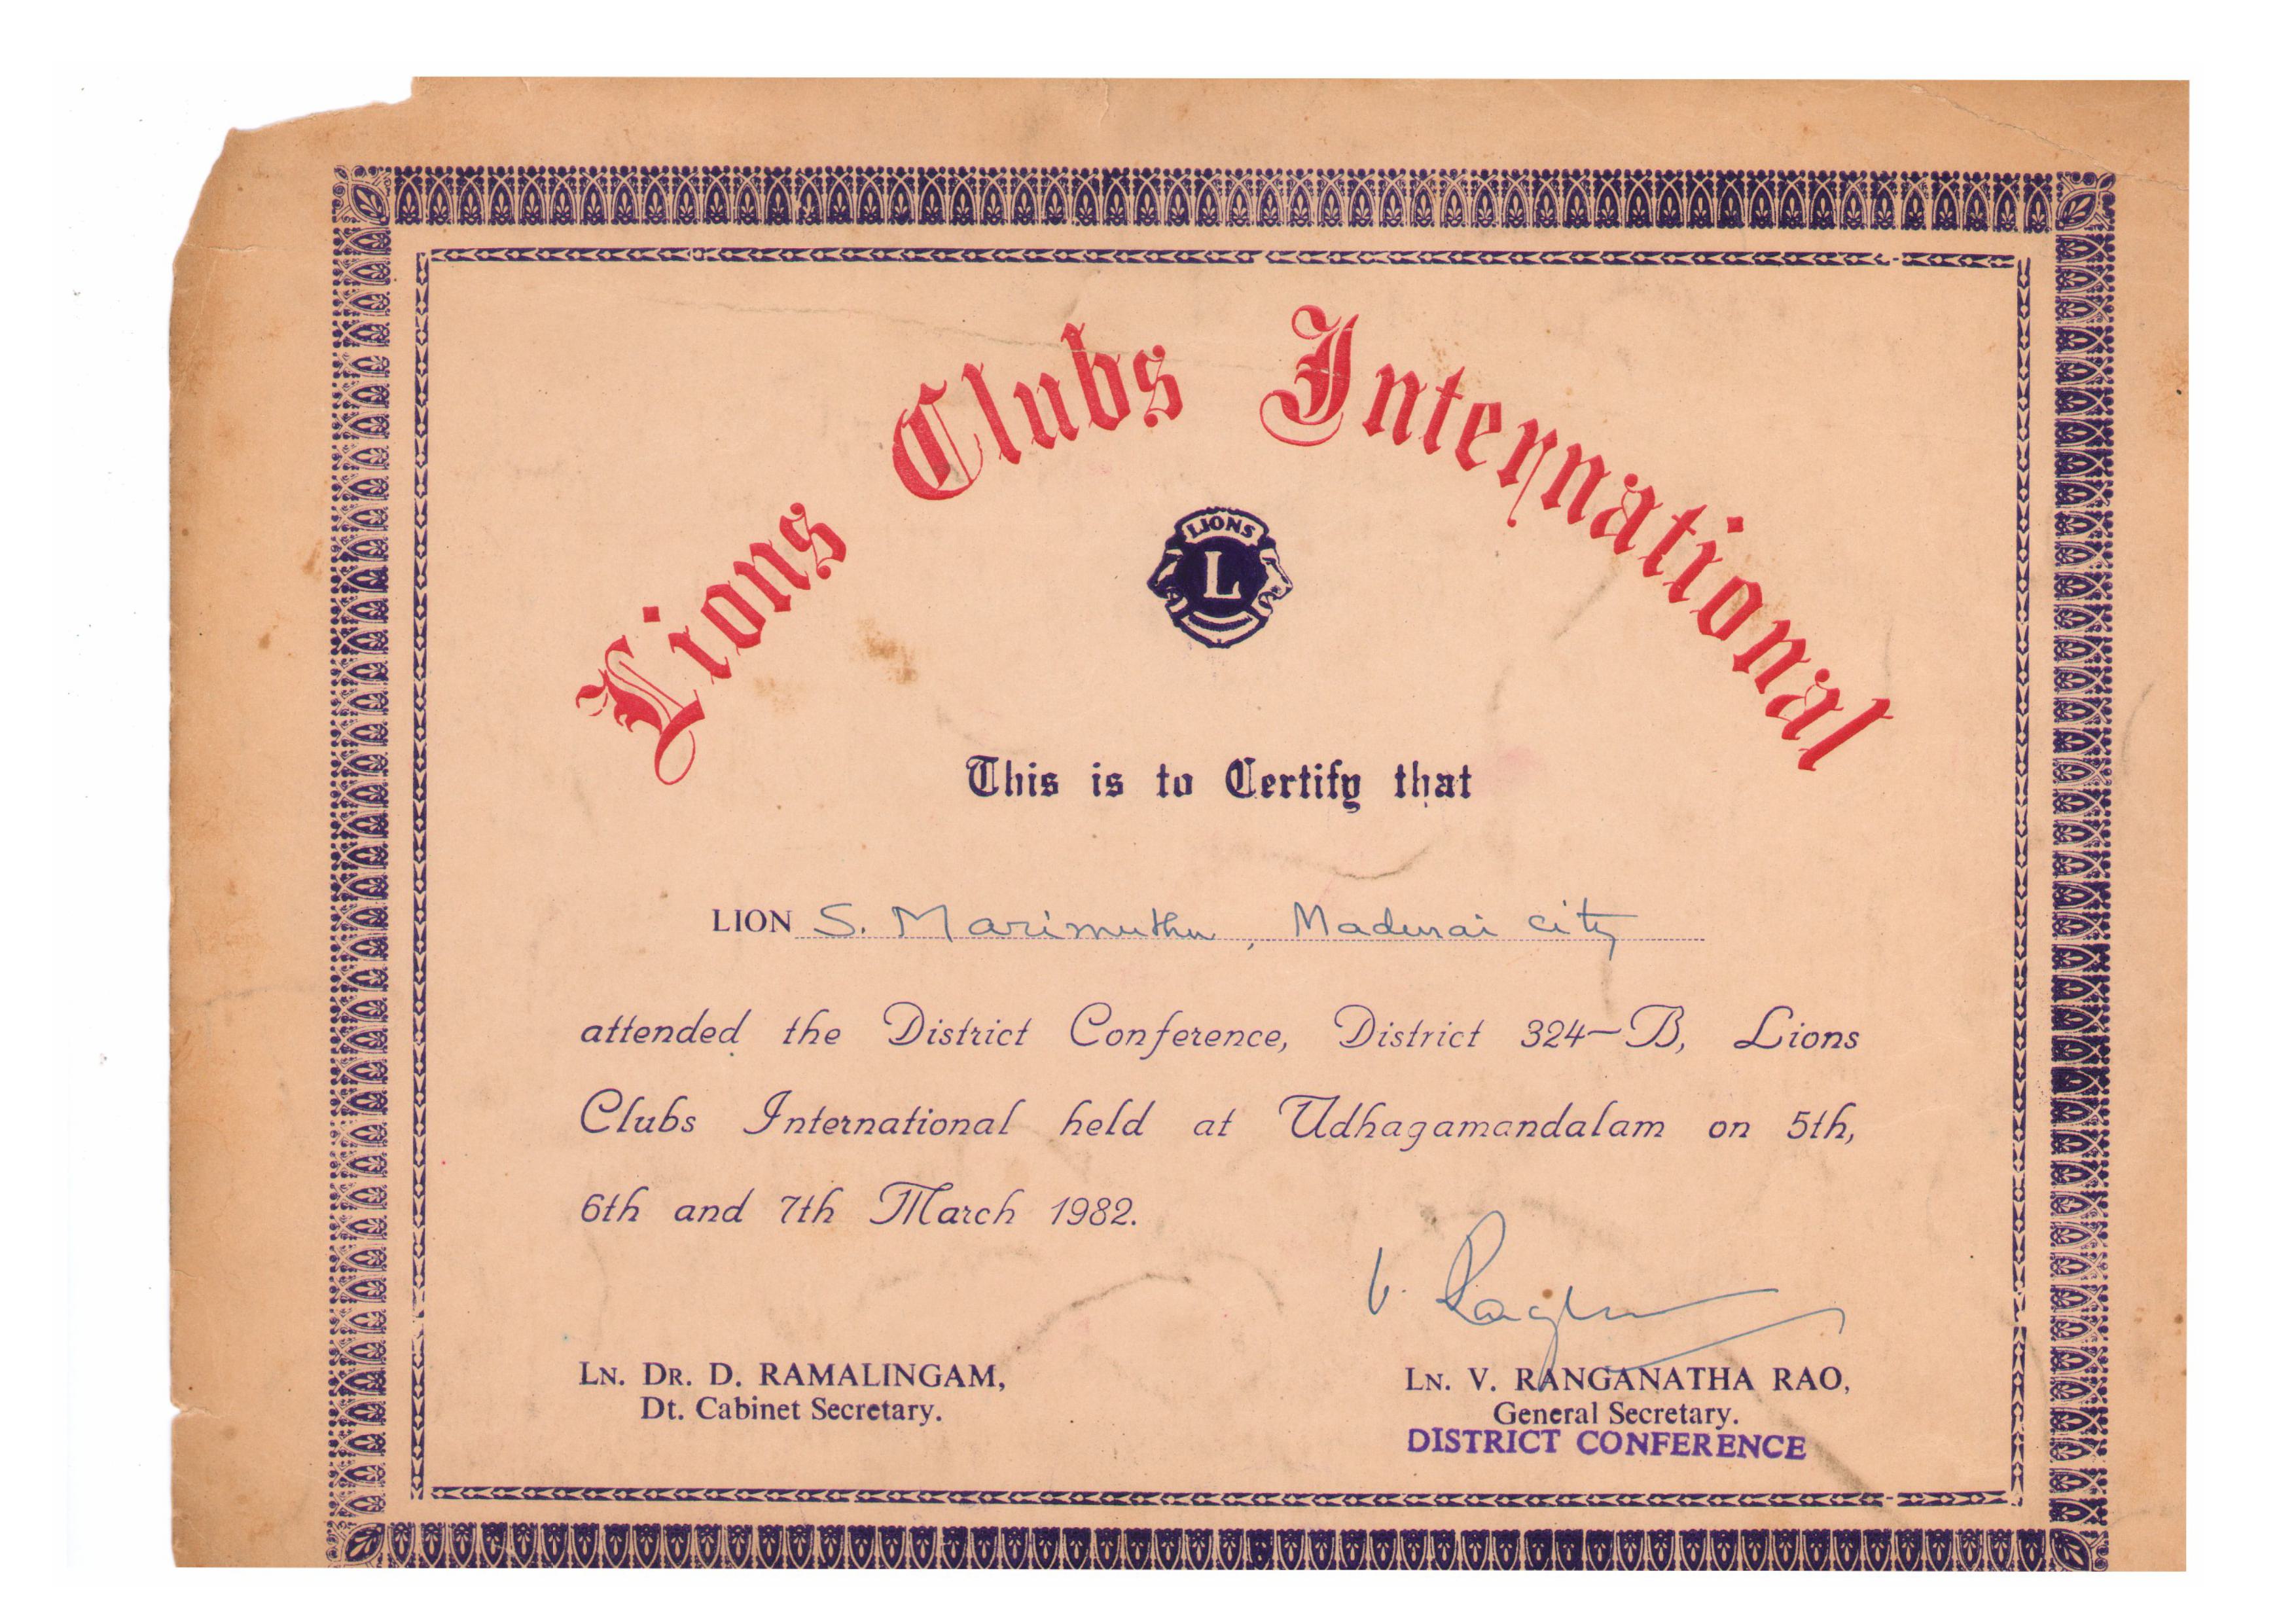 Lions Clubs International
LIONS
L
This is to Certify that
LION S. Marimuthu, Madurai city
attended the District Conference, District 324-B, Lions
Clubs International held at Udhagamandalam on 5th,
6th and 7th March 1982.
V. Raghu
LN. DR. D. RAMALINGAM,
Dt. Cabinet Secretary.
LN. V. RANGANATHA RAO,
General Secretary.
DISTRICT CONFERENCE